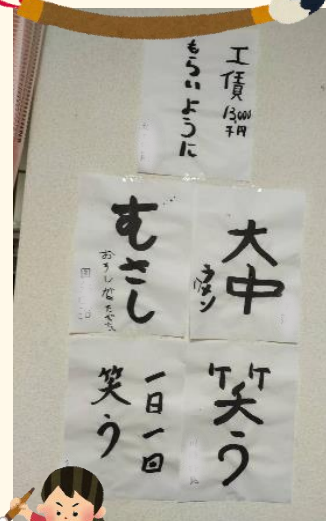 工債13,000千円
もらいように
大中
むさし
笑う
一日一回
笑う